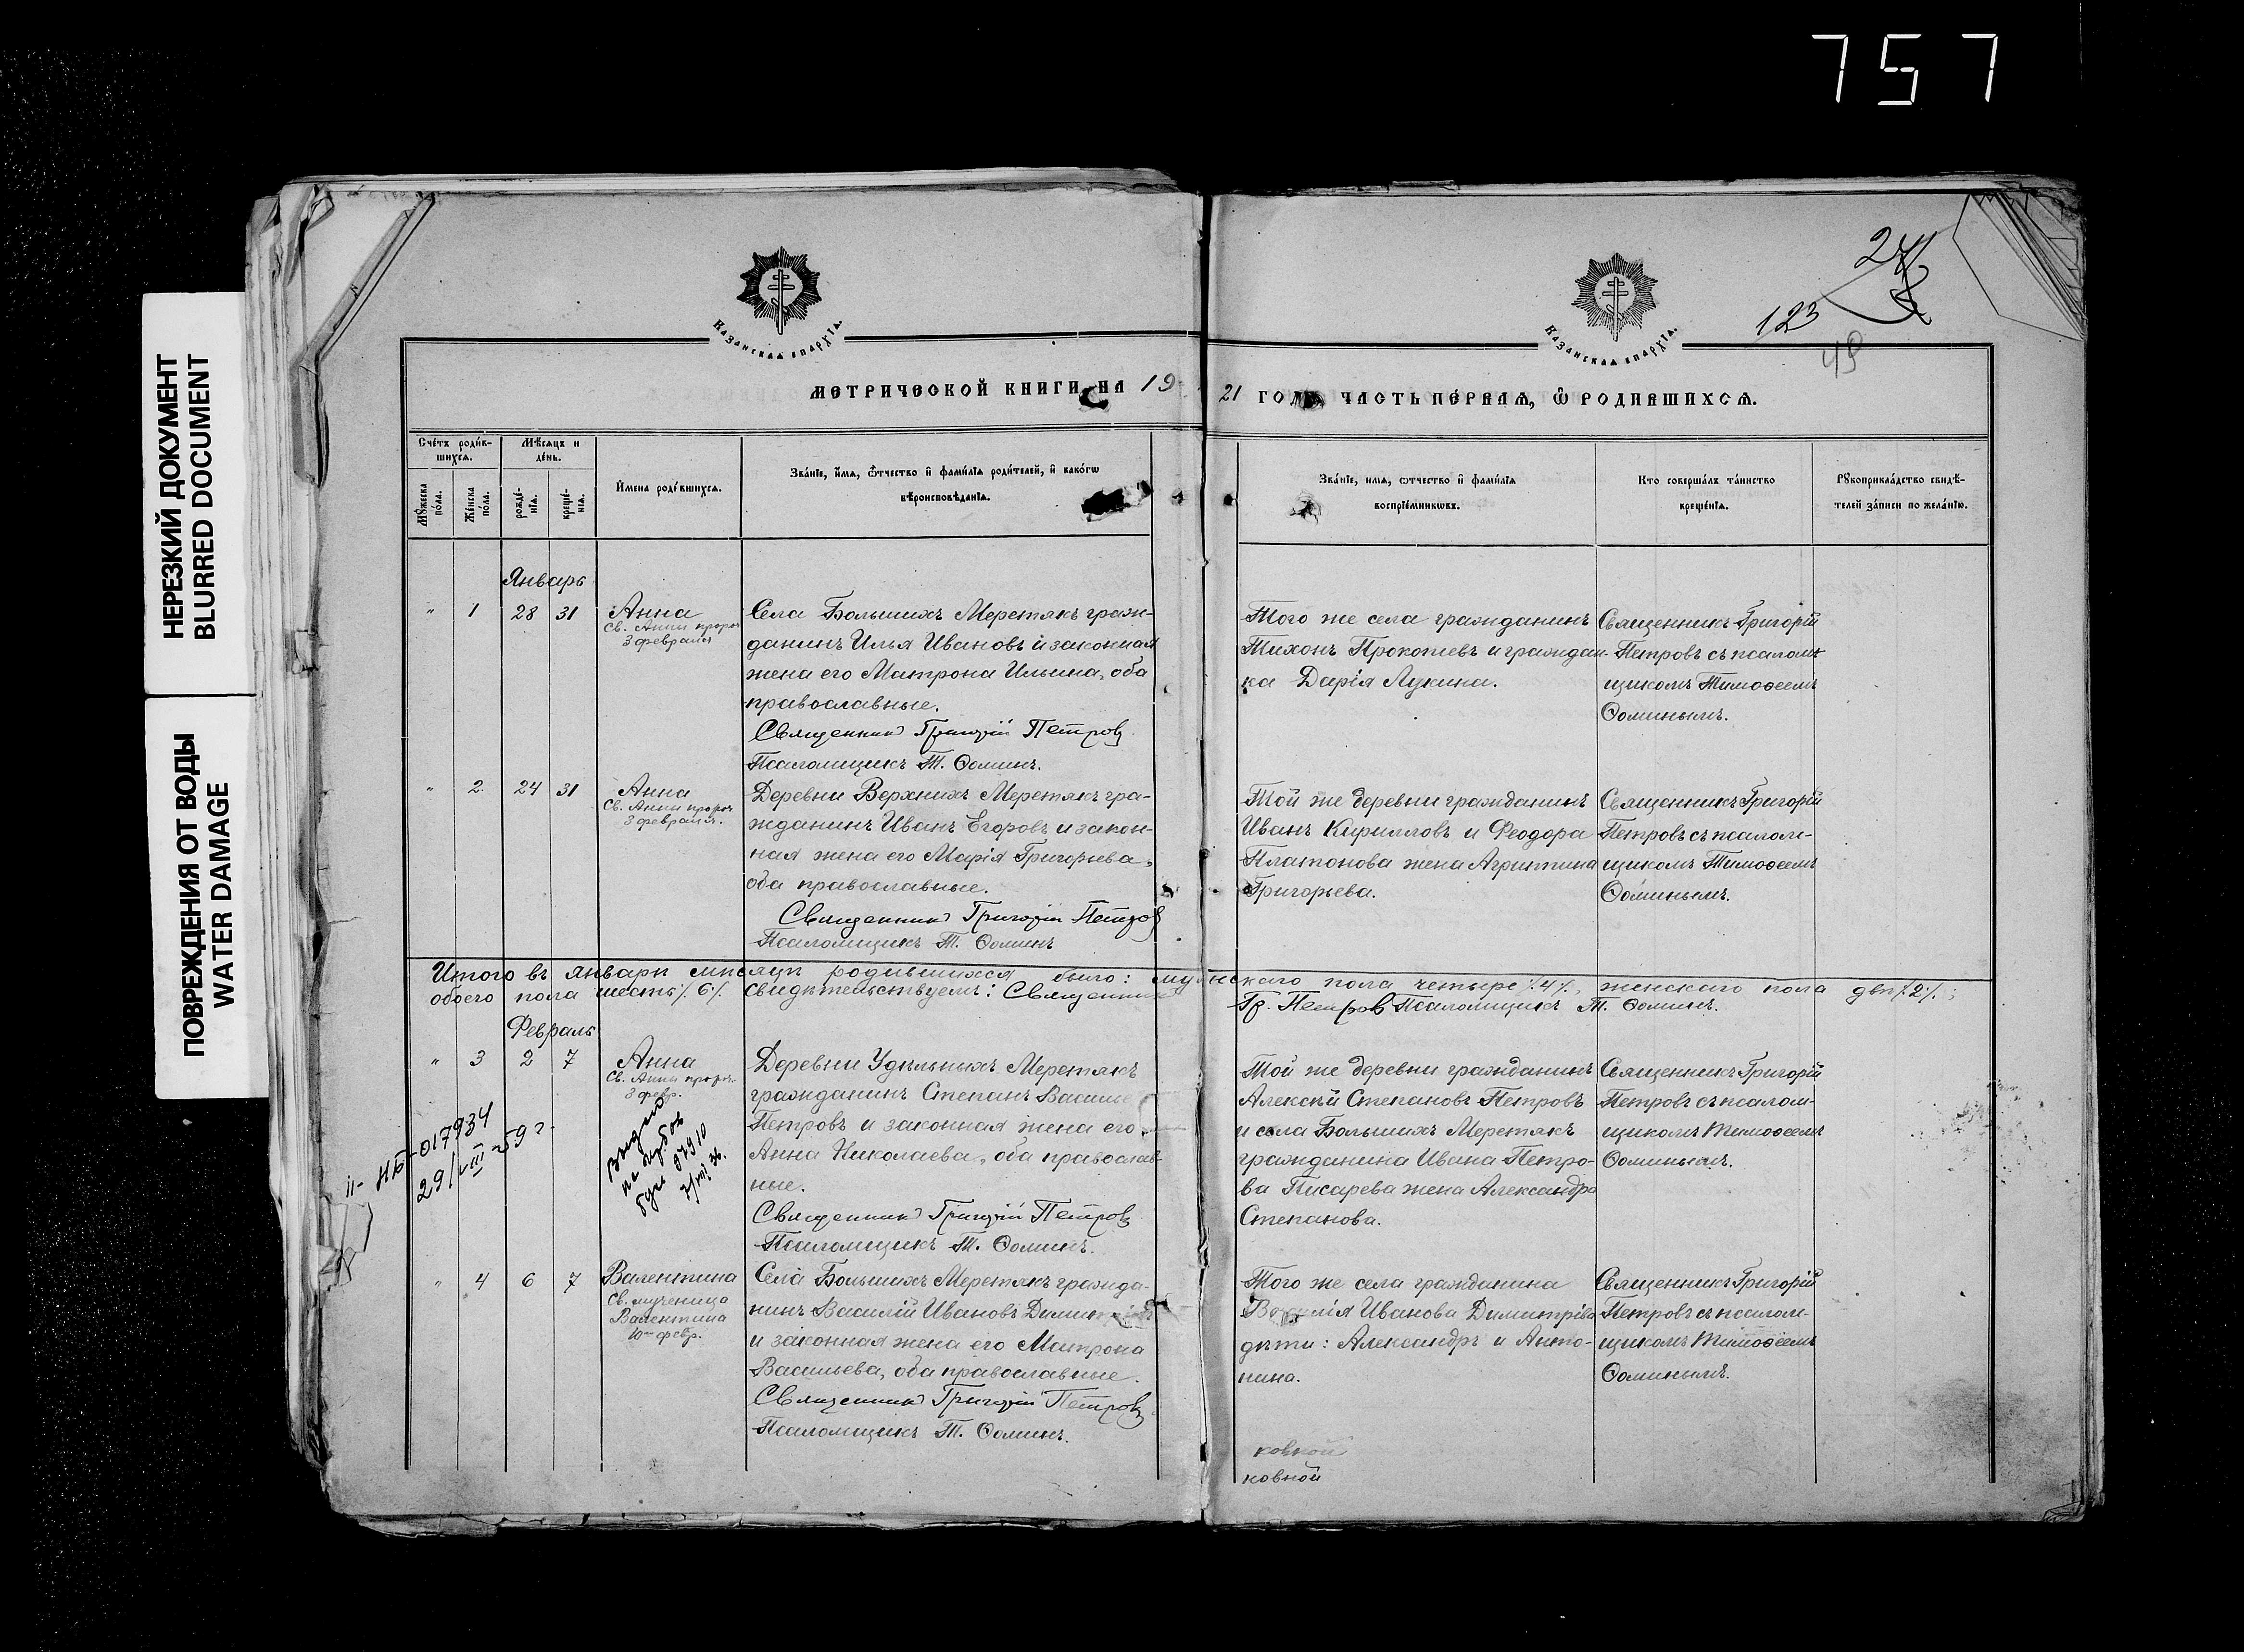 757
НЕРЕЗКИЙ ДОКУМЕНТ
BLURRED DOCUMENT
ПОВРЕЖДЕНИЯ ОТ ВОДЫ
WATER DAMAGE
Казанская епархїя.
Казанская епархїя.
123
49
МЕТРИЧЕСКОЙ КНИГИ НА 19 21 ГОДЪ ЧАСТЬ ПЕРВАЯ, Ѽ РОДИВШИХСЯ.
Счétъ роди́в-
шихся.
Мѣсяцъ и
де́нь.
Мꙋжеска
по́ла.
Же́нска
по́ла.
рожде́-
нїя.
креще́-
нїя.
И́мена роди́вшихся.
Зва́нїе, и́мя, ѻ҆́тчество и҆ фами́лїя роди́телей, и҆ како́гѡ
вѣроисповѣ́данїя.
Зва́нїе, имя, ѻтчество и҆ фами́лїя
воспрїе́мникѡвъ.
Кто соверша́лъ та́инство
креще́нїя.
Рꙋкоприкла́дство свидѣ́-
телей за́писи по жела́нїю.
Январь
" 1 28 31 Анна
Св. Анны прор.
3 февраля
Села Большихъ Меретякъ граж-
данинъ Илья Ивановъ и законная
жена его Матрона Ильина, оба
православные.
Священникъ Григорій Петровъ
Псаломщикъ Т. Ѳоминъ.
Того же села гражданинъ
Тихонъ Прокопьевъ и граждан-
ка Дарія Лукина.
Священникъ Григорій
Петровъ съ псалом-
щикомъ Тимоѳеемъ
Ѳоминымъ.
" 2. 24 31 Анна
Св. Анны пророч.
3 февраля.
Деревни Верхнихъ Меретякъ гра-
жданинъ Иванъ Егоровъ и закон-
ная жена его Марія Григорьева,
оба православные.
Священникъ Григорій Петровъ
Псаломщикъ Т. Ѳоминъ
Той же деревни гражданинъ
Иванъ Кирилловъ и Ѳеодора
Платонова жена Агриппина
Григорьева.
Священникъ Григорій
Петровъ съ псалом-
щикомъ Тимоѳеемъ
Ѳоминымъ.
Итого въ январѣ мѣсяцѣ родившихся было: мужскаго пола четыре /.4/., женскаго пола двѣ /.2/.;
обоего пола шесть /.6/. Свидѣтельствуемъ: Священникъ Гр. Петровъ Псаломщикъ Т. Ѳоминъ.
Февраль
" 3 2 7 Анна
Св. Анны пророч.
3 февр.
Деревни Удѣльныхъ Меретякъ
гражданинъ Степанъ Василье
Петровъ и законная жена его
Анна Николаева, оба православ-
ные.
Священникъ Григорій Петровъ
Псаломщикъ Т. Ѳоминъ.
Той же деревни гражданинъ
Алексѣй Степановъ Петровъ
и села Большихъ Меретякъ
гражданина Ивана Петро-
ва Писарева жена Александра
Степанова.
Священникъ Григорій
Петровъ съ псалом-
щикомъ Тимоѳеемъ
Ѳоминымъ.
II-НБ-017934
29/VIII-59 г.
" 4 6 7 Валентина
Св. мученица
Валентина
10го февр.
Села Большихъ Меретякъ гражда-
нинъ Василій Ивановъ Димитріевъ
и законная жена его Матрона
Васильева, оба православные.
Священникъ Григорій Петровъ
Псаломщикъ Т. Ѳоминъ.
Того же села гражданина
Василія Иванова Димитріева
дѣти: Александръ и Анто-
нина.
Священникъ Григорій
Петровъ съ псалом-
щикомъ Тимоѳеемъ
Ѳоминымъ.
ковной
ковной